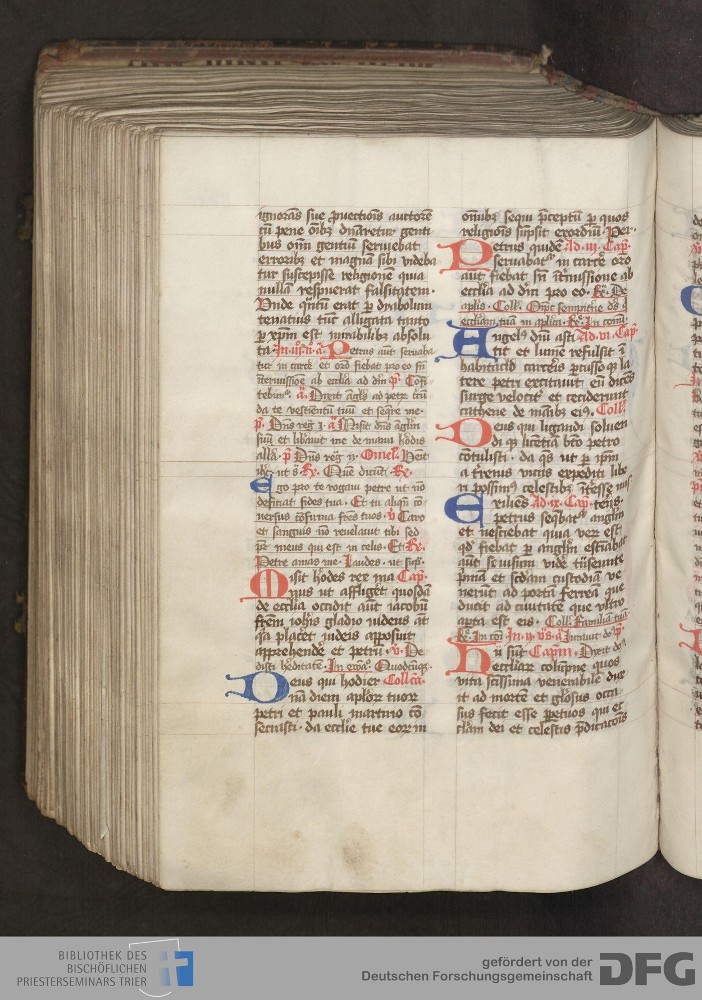 ignorās siue ꝓuectiōis auctorē
cū pene oīb3 dn̄aretur genti
bus om̄i gentiū seruiebat
errorib3 et magnā sibi videba
tur suscepisse religionē quia
nullā respuerat falsitatem·
Vnde qͣntū erat ꝑ dyabolum
tenatius tūc alligata tanto
ꝑ xp̄m est mirabilib3 absolu
ta· Petrus aūt seruaba
tur in carcē et orō fiebat pro eo sn̄
īterīssionē ab ecclīa ad dīm
Dixit āgl̄s ad petrū
da te vestientū tuū et seqre me·
Misit dn̄s āglm̄
suū et libauit me de manu h̄odis
all̄a· Dn̄s reg̅ Omel. Venit
ih̄c ut sͣ R̅. Quē dicūt· R̅e·
Ego pro te rogaui petre ut nō
deficiat fides tua· Et tu aliqn̄ cō
uersus cōfirma frēs tuos· v̄ Caro
et sanguis nō reuelauit tibi sed
pr̄ meus qui est in celis· Et R̅e·
Petre amas me· Laudes· ut supͣ·
Misit h̄odes rex ma Cap̄·
nus ut affligēt quosdā
de ecclīa occidit aūt iacobū
frēm ioh̄is gladio videns aūt
qͣ placēt iudeis apposuit
apprehendē et petrū· v̄· De
disti h̄editatē· In euāg̅· Quodcūq3·
Deus qui hodier Coll̄cā·
nā diem aplor̄ tuor̄
petri et pauli martirio cō
secrasti· da ecclīe tue eor̄ in
om̄ib3 sequi p̄ceptū ꝑ quos
religiōis sūpsit exordiū· Per·
Petrus quidē Ad iij· Cap̄·
seruabatͬ in carcē oro
aūt fiebat sn̄ īt̄missione ab
ecclīa ad dīm pro eo· R̅· De
aplīs· Coll̄· Om̄pc̄ sempitne ds̄
ecclesiam tuā in aplīca· R̅· In
Angelꝰ dn̄i asti Ad vi· Cap̄
tit et lumē refulsit ī
habitaclo carcēis ꝑcussoqͦ la
tere petri excitauit eū dicēs
surge velocitͬ et ceciderunt
cathene de manib3 eiꝰ. Coll̄·
Deus qui ligandi soluen
di qͦ licētiā bt̄o petro
cōtulisti· da qͣs ut ꝑ ip̄m
a t̄renis vitijs expediti libe
ri possimꝰ celestib3 īteresse
Exiliēs Ad ix· Cap̄·
petrus seqbatͬ anglm̄
et nesciebat quia ver̄ est
qd̄ fiebat ꝑ anglm̄ estiābat
aūt se visum vidē tūseunte
p̄mā et scdām custodiā ve
nerūt ad portā ferreā que
ducit ad ciuitatē que vltro
apta est eis· Coll̄· Familiā tuā
R̅· In ij· vs̄· a Iurauit dō
Hii sūt Cap̄m· Dixit dō
necclīare colūpne quos
vita sctīssima venerabile dux
it ad mortē et gl̄osus occa
sus fecit esse ꝑpetuos qui et
clāri dei et celestis p̄dicatiōis
BIBLIOTHEK DES
BISCHÖFLICHEN
PRIESTERSEMINARS TRIER
gefördert von der
Deutschen Forschungsgemeinschaft
DFG